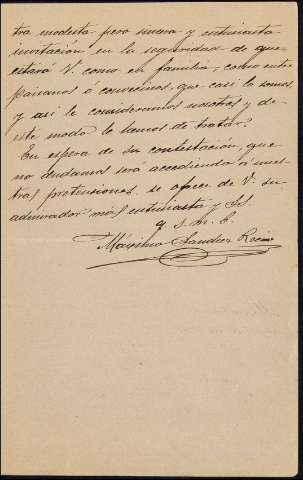 tra modesta pero sincera y entusiasta
invitación en la seguridad de que
estará V. como en familia, como entre
paisanos ó convecinos, que casi lo somos
y asi le consideramos nosotros y de
este modo le hemos de tratar.
En espera de su contestación, que
no dudamos será accediendo á nues-
tras pretensiones se ofrece de V. su
admirador más entusiasta y SS.
q. s. m. b.
Máximo Sanchez Recio